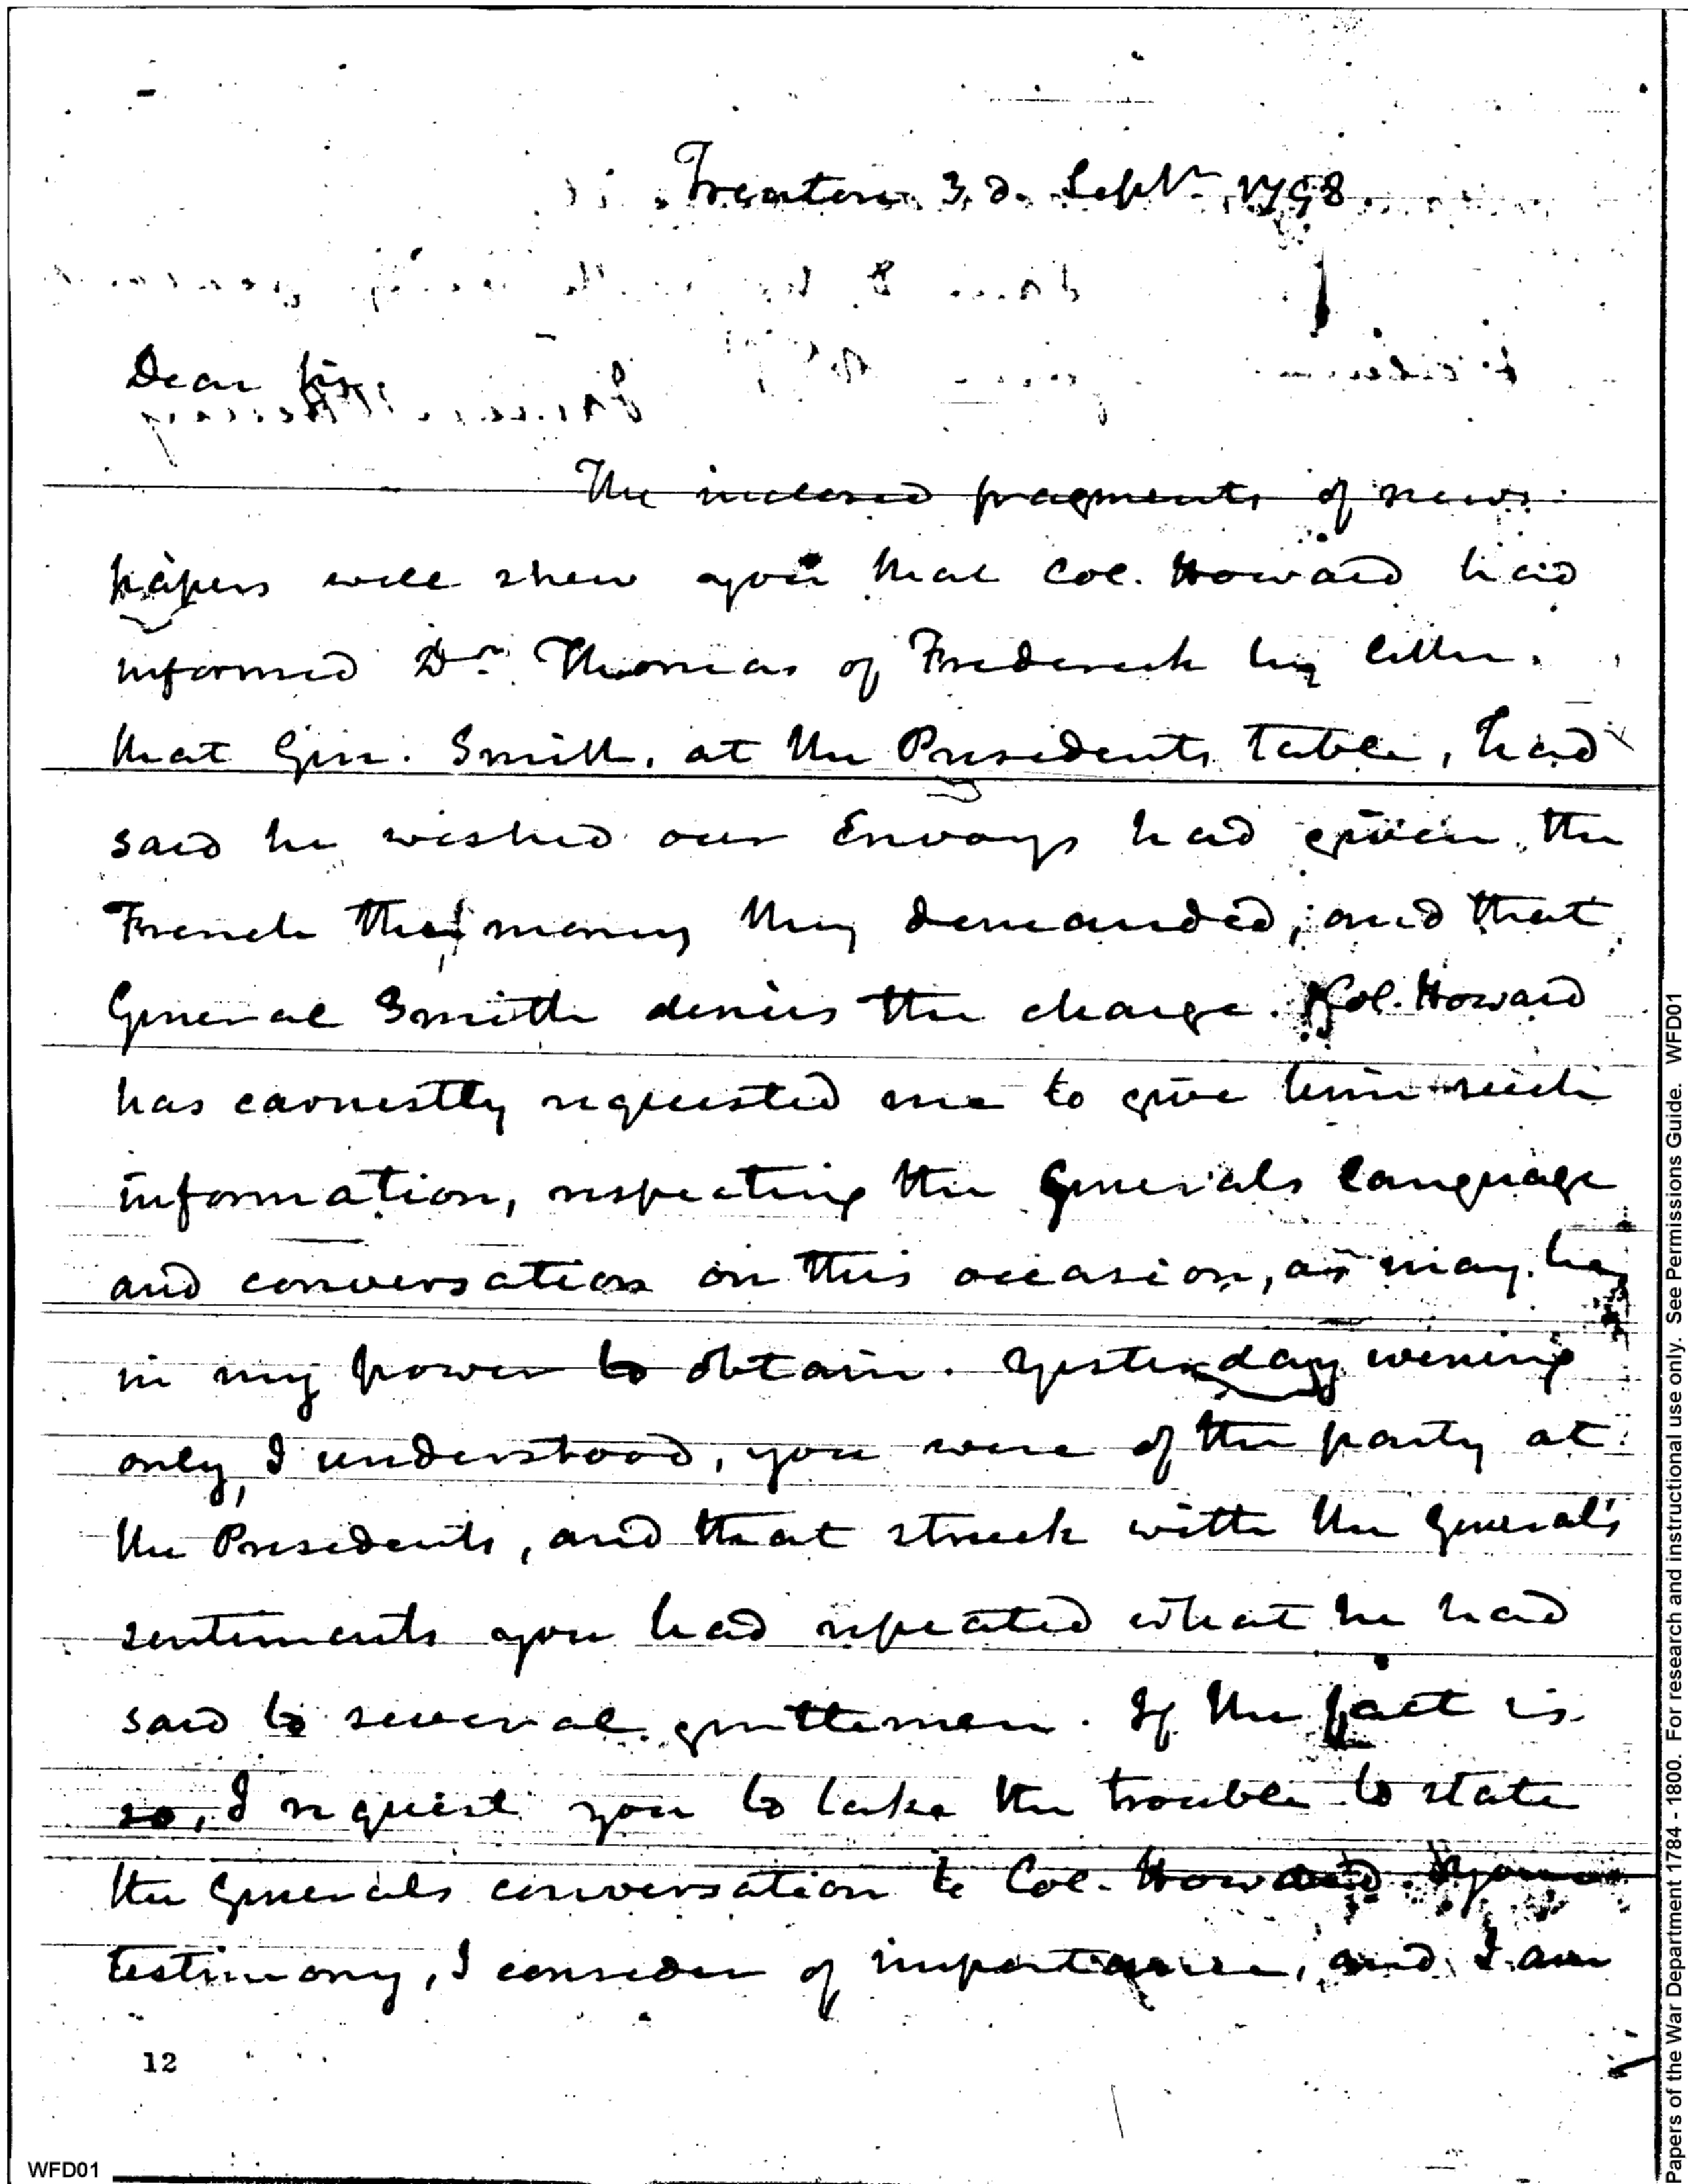 Trenton 3d. Sept. 1798.
Dear Sir,
The inclosed fragments of news
papers will shew you that Col. Howard had
informed Dr. Thomas of Frederick by letter.
that Gen. Smith, at the Presidents table, had
said he wished our Envoys had given the
French the money they demanded, and that
General Smith denies the charge. Col. Howard
has earnestly requested me to give him such
information, respecting the Generals language
and conversation on this occasion, as may be
in my power to obtain. Yesterday evening
only, I understood, you were of the party at
the Presidents, and that struck with the General's
sentiments you had repeated what he had
said to several gentlemen. If the fact is
so, I request you to take the trouble to state
the Generals conversation to Col. Howard. Your
testimony, I consider of importance, and I am
12
WFD01
Papers of the War Department 1784 - 1800. For research and instructional use only. See Permissions Guide. WFD01